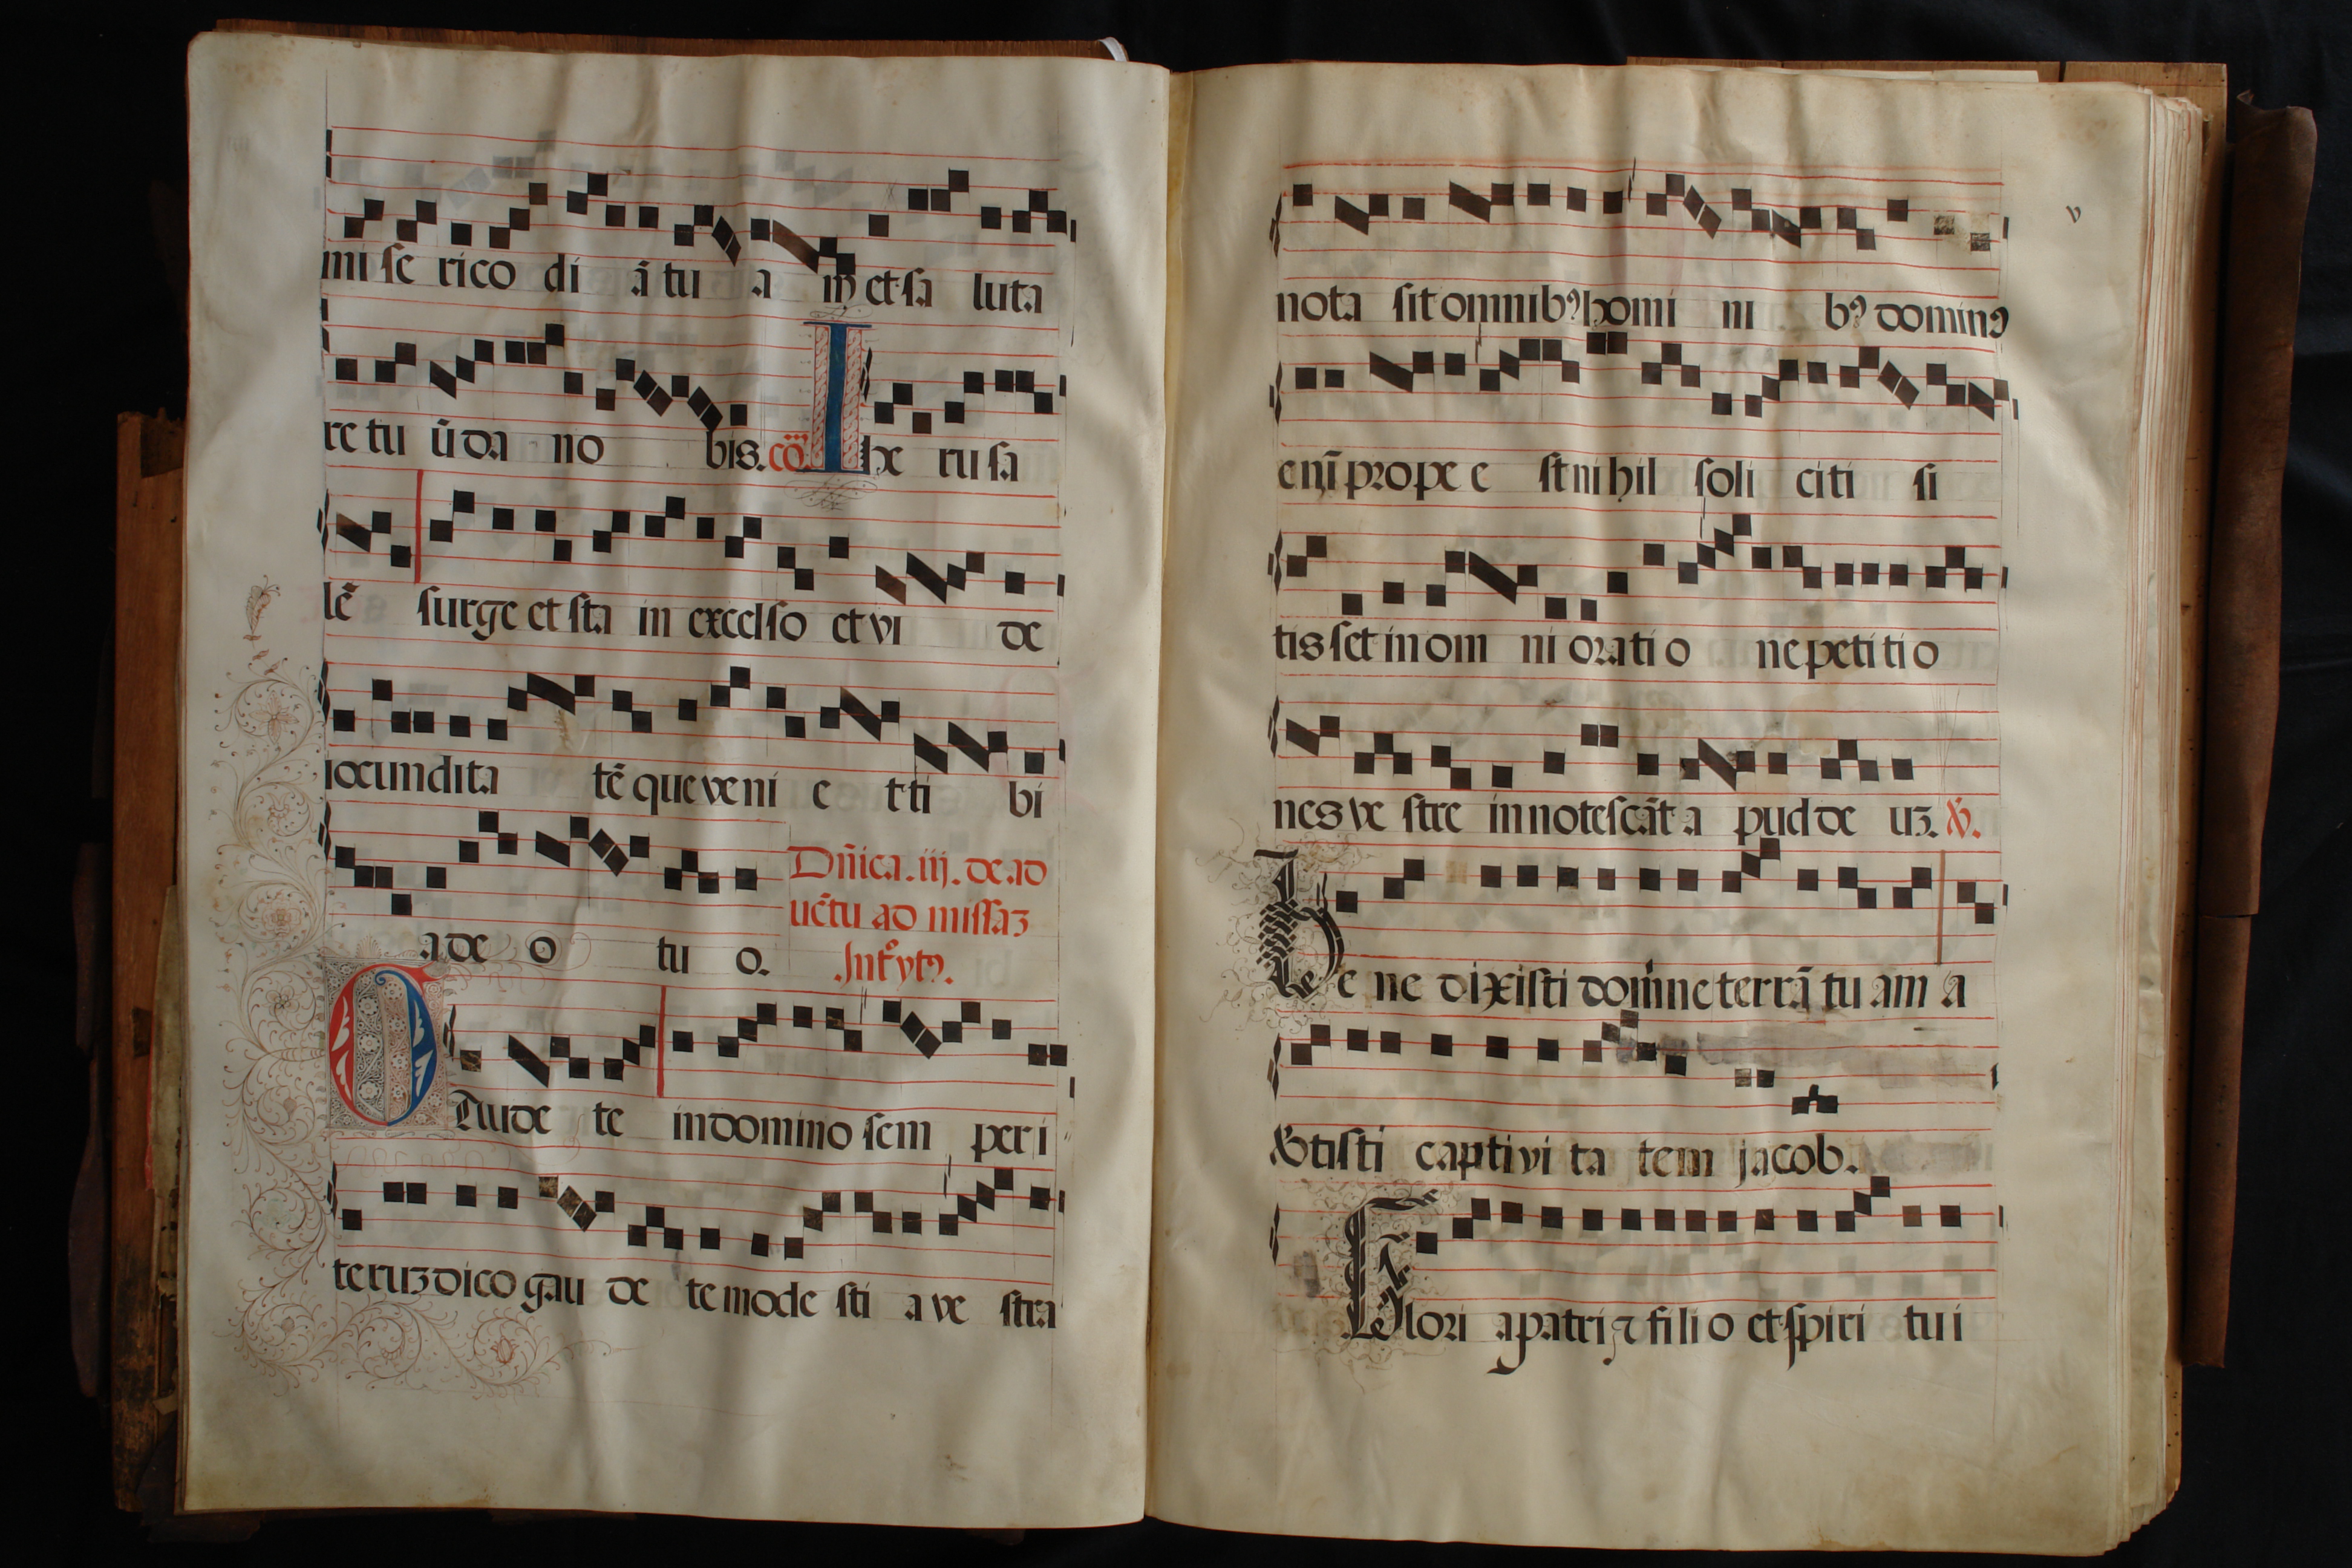 mi se rico di ā tu a m et sa luta
re tu ū da no bis. cõ. Ihe rusa
lē surge et sta in excelso et vi de
iocundita tē que veni e t ti bi
a de o tu o. Dñica. iij. de ad
uētu ad missaz
.Intᵒytꝰ.
Gaude te in domino sem per i
teruz dico gau de te mode sti a ve stra
v
nota sit omnibꝰ homi ni bꝰ dominꝰ
eni prope e st ni hil soli citi si
tis set in om ni orati o ne petiti o
nes ve stre innotescāt a pud de uz. ꝟ.
Be ne dixisti domine terrā tu am a
vertisti captivi ta tem jacob.
Glori a patri ⁊ fili o et spiri tu i